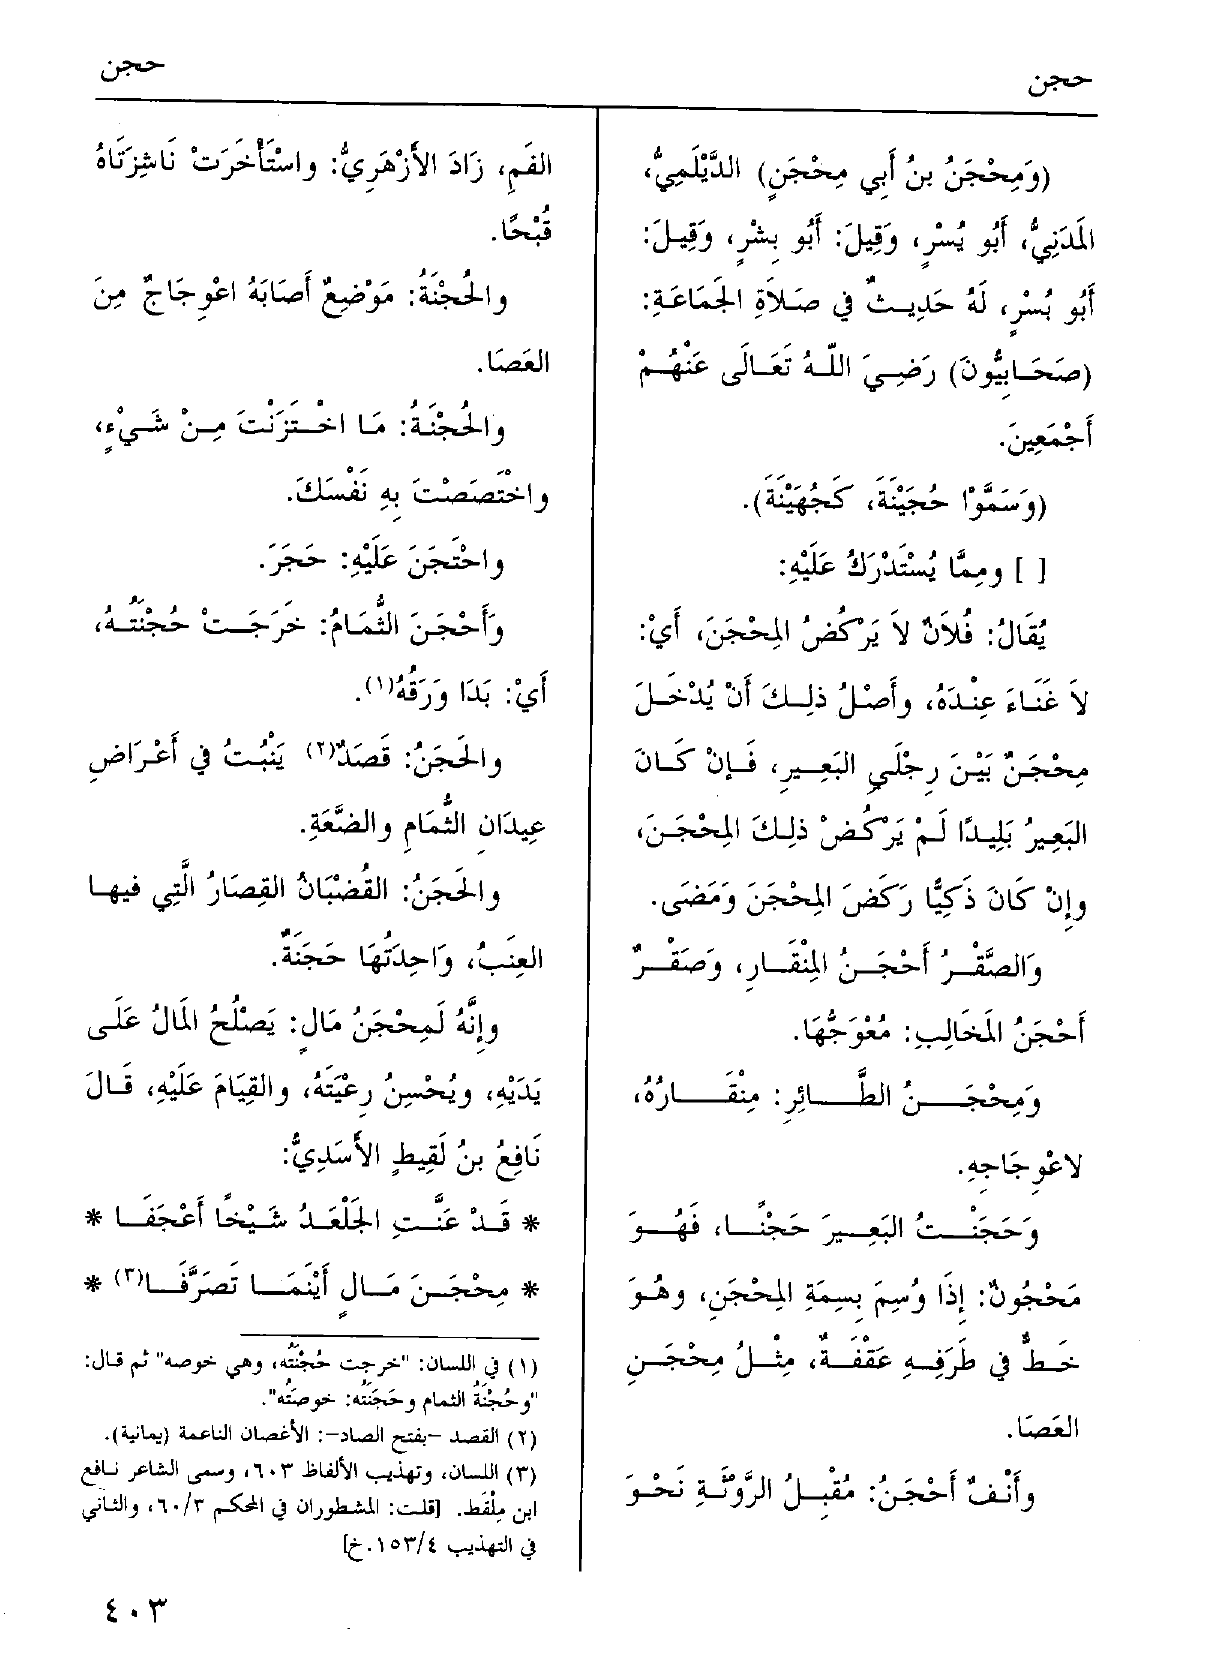 حجن
حجن
(وَمِحْجَنُ بنُ أَبِي مِحْجَنٍ) الدَّيْلَمِيُّ،
المَدَنِيُّ، أَبُو يُسْرٍ، وَقِيلَ: أَبُو بِشْرٍ، وَقِيلَ:
أَبُو بُسْرٍ، لَهُ حَدِيثٌ فِي صَلاَةِ الجَمَاعَةِ:
(صَحَابِيُّونَ) رَضِيَ اللّهُ تَعَالَى عَنْهُمْ
أَجْمَعِينَ.
(وَسَمَّوْا حُجَيْنَةَ، كَجُهَيْنَةَ).
[ ] ومِمَّا يُسْتَدْرَكُ عَلَيْهِ:
يُقَالُ: فُلاَنٌ لاَ يَرْكُضُ المِحْجَنَ، أَيْ:
لاَ غَنَاءَ عِنْدَهُ، وأَصْلُ ذلِكَ أَنْ يُدْخَلَ
مِحْجَنٌ بَيْنَ رِجْلَيِ البَعِيرِ، فَإِنْ كَانَ
البَعِيرُ بَلِيدًا لَمْ يَرْكُضْ ذلِكَ المِحْجَنَ،
وإِنْ كَانَ ذَكِيًّا رَكَضَ المِحْجَنَ وَمَضَى.
وَالصَّقْرُ أَحْجَنُ المِنْقَارِ، وَصَقْرٌ
أَحْجَنُ المَخَالِبِ: مُعْوَجُّهَا.
وَمِحْجَنُ الطَّائِرِ: مِنْقَارُهُ،
لاعْوِجَاجِهِ.
وَحَجَنْتُ البَعِيرَ حَجْنًا، فَهُوَ
مَحْجُونٌ: إِذَا وُسِمَ بِسِمَةِ المِحْجَنِ، وهُوَ
خَطٌّ فِي طَرَفِهِ عَقْفَةٌ، مِثْلُ مِحْجَنِ
العَصَا.
وَأَنْفٌ أَحْجَنُ: مُقْبِلُ الرَّوْثَةِ نَحْوَ
الفَمِ، زَادَ الأَزْهَرِيُّ: واسْتَأْخَرَتْ نَاشِزَتَاهُ
قُبْحًا.
والحُجْنَةُ: مَوْضِعٌ أَصَابَهُ اعْوِجَاجٌ مِنَ
العَصَا.
والحُجْنَةُ: مَا اخْتَزَنْتَ مِنْ شَيْءٍ،
واخْتَصَصْتَ بِهِ نَفْسَكَ.
واحْتَجَنَ عَلَيْهِ: حَجَرَ.
وَأَحْجَنَ الثُّمَامُ: خَرَجَتْ حُجْنَتُهُ،
أَيْ: بَدَا وَرَقُهُ(١).
والحَجَنُ: قَصَدٌ(٢) يَنْبُتُ فِي أَعْرَاضِ
عِيدَانِ الثُّمَامِ والضَّعَةِ.
والحَجَنُ: القُضْبَانُ القِصَارُ الَّتِي فيهَا
العِنَبُ، وَاحِدَتُهَا حَجَنَةٌ.
وإِنَّهُ لَمِحْجَنُ مَالٍ: يَصْلُحُ المَالُ عَلَى
يَدَيْهِ، ويُحْسِنُ رِعْيَتَهُ، والقِيَامَ عَلَيْهِ، قَالَ
نَافِعُ بنُ لَقِيطٍ الأَسَدِيُّ:
* قَدْ عَنَّتِ الجَلْعَدُ شَيْخًا أَعْجَفَا *
* مِحْجَنَ مَالٍ أَيْنَمَا تَصَرَّفَا(٣) *
(١) في اللسان: "خرجت حُجْنَتُه، وهي خوصه" ثم قال:
"وحُجْنَةُ الثمام وحَجَنَتُه: خوصَتُه".
(٢) القصد -بفتح الصاد-: الأغصان الناعمة (يمانية).
(٣) اللسان، وتهذيب الألفاظ ٦٠٣، وسمى الشاعر نافع
ابن مِلْقَط. [قلت: المشطوران في المحكم ٦٠/٣، والثاني
في التهذيب ١٥٣/٤.خ]
٤٠٣